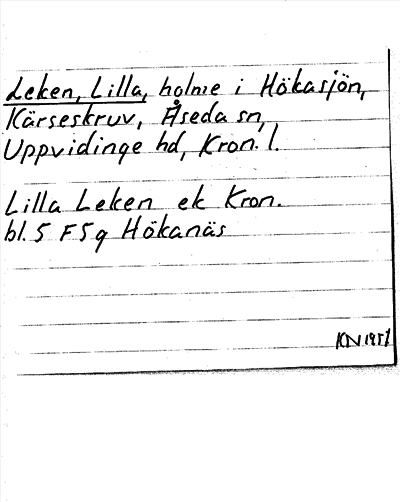 Leken, Lilla, holme i Hökasjön,
Kärseskruv, Åseda sn,
Uppvidinge hd, Kron. l.
Lilla Leken ek Kron.
bl. 5 F5g Hökanäs
KN 1951